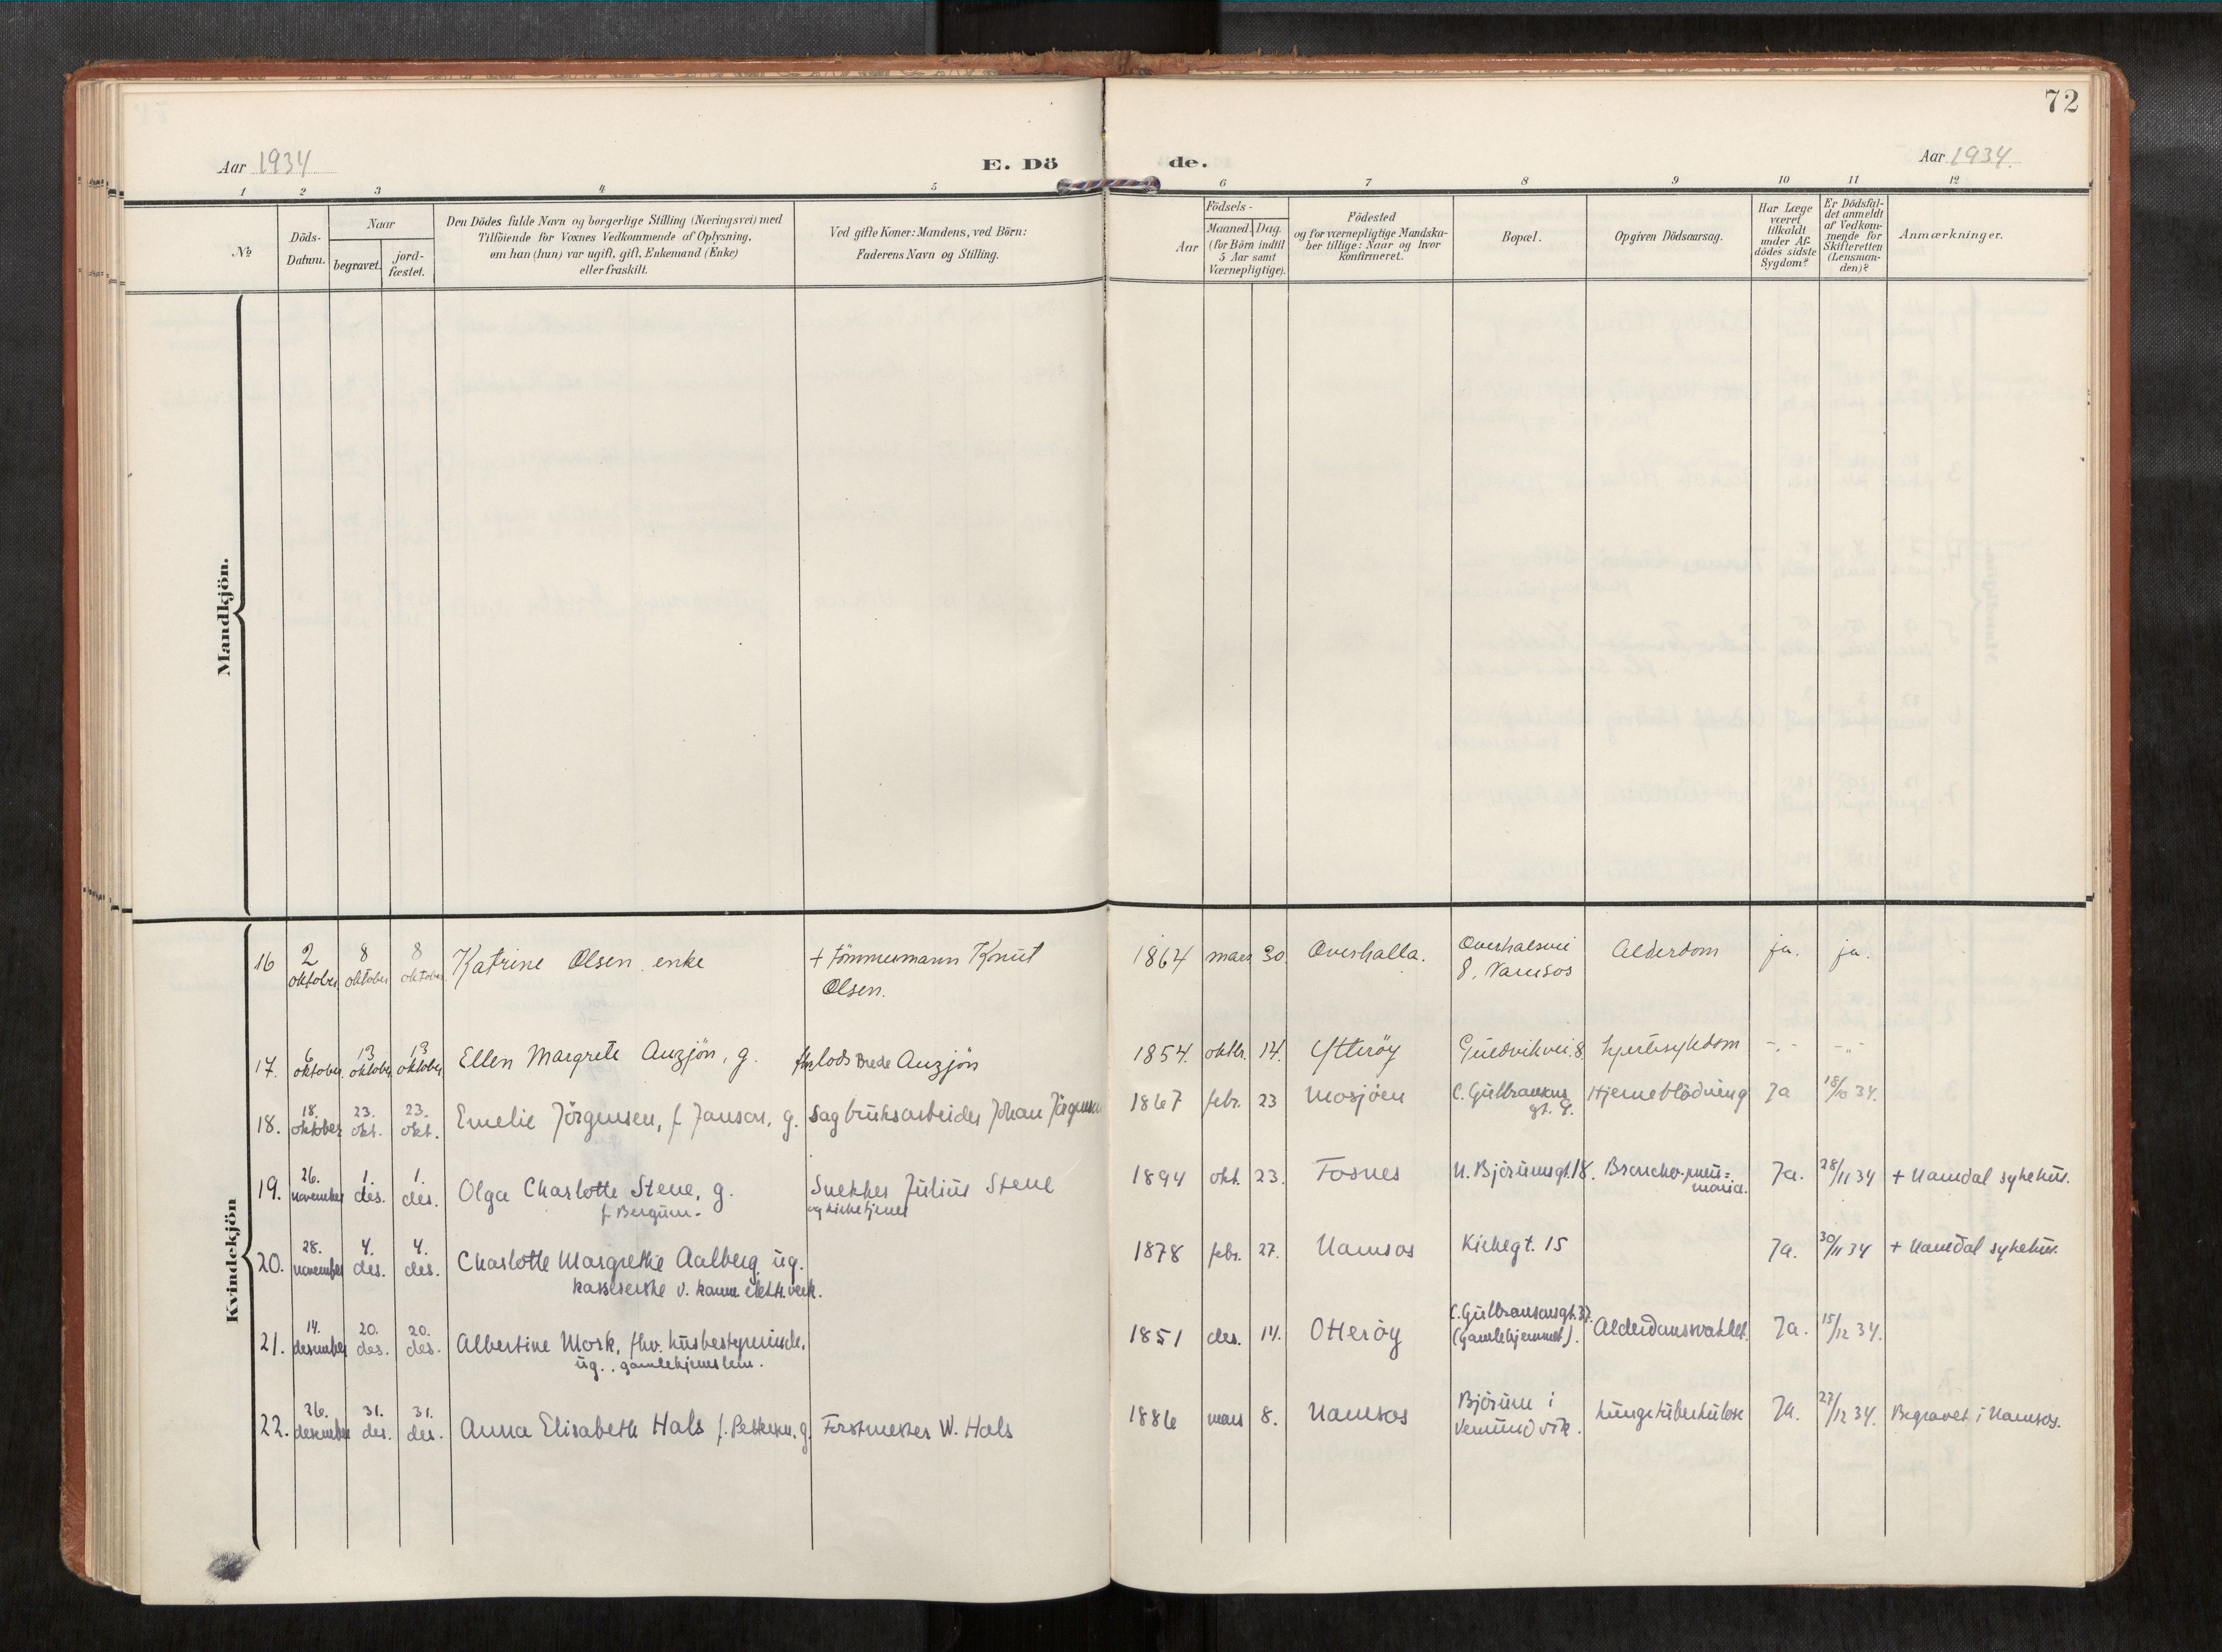 72
Aar 1934
E. Dö
de.
Aar 1934.
1 2 3 4 5 6 7 8 9 10 11 12
№
Döds-
Datum.
Naar
begravet.
jord-
fæstet.
Den Dödes fulde Navn og borgerlige Stilling (Næringsvei) med
Tilföiende for Voxnes Vedkommende af Oplysning,
om han (hun) var ugift, gift, Enkemand (Enke)
eller fraskilt.
Ved gifte Koner: Mandens, ved Börn:
Faderens Navn og Stilling.
Födsels-
Aar
Maaned. Dag.
(for Börn indtil
5 Aar samt
Værnepligtige).
Födested
og for værnepligtige Mandska-
ber tillige: Naar og hvor
konfirmeret.
Bopæl.
Opgiven Dödsaarsag.
Har Læge
været
tilkaldt
under Af-
dödes sidste
Sygdom?
Er Dödsfal-
det anmeldt
af Vedkom-
mende for
Skifteretten
(Lensman-
den)?
Anmærkninger.
Mandkjön.
Kvindekjön
16 2 oktober 8 oktober 8 oktober Katrine Olsen enke + tömmermann Knut
Olsen.
1864 mars 30. Overhalla. Overhalsvei
8, Namsos
Alderdom ja. ja.
17. 6 oktober. 13 oktober 13 oktober. Ellen Margrete Auzjön, g. fhv lods Brede Auzjön
1854. oktbr. 14. Ytteröy 8. hjertesykdom -.- -"-
18. 18. oktober 23. okt. 23. okt. Emelie Jörgensen, f. Jansen, g. Sagbruksarbeider Johan Jörgensen
1867 febr. 23 Mosjöen C. Gulbransens
gt. 9.
Hjerneblödning Ja 18/10 34.
19. 26. november 1. des. 1. des. Olga Charlotte Stene, g.
f. Bergum.
Snekker Julius Stene
og kirketjener
1894 okt. 23. Fosnes N. Björumsgt. 18. Broncho-pneu=
monia.
Ja. 28/11 34 + Namdal sykehus.
20. 28. november 4. des. 4. des. Charlotte Margrethe Aalberg ug.
kassererske v. komm. elektr. verk.
1878 febr. 27. Namsos Kirkegt. 15 Ja. 30/11 34 + Namdal sykehus.
21. 14. desember 20. des. 20. des. Albertine Mork, fhv. husbestyrerinde,
ug., gamlehjemslem.
1851 des. 14. Otteröy C. Gulbransonsgt. 37.
(Gamlehjemmet).
Alderdomssvakhet. Ja. 15/12 34.
22. 26. desember 31. des. 31. des. Anna Elisabeth Hals f. Pettersen, g. Forstmester W. Hals
1886 mars 8. Namsos Björum i
Vemundvik.
Lungetuberkulose Ja. 27/12 34. Begravet i Namsos.